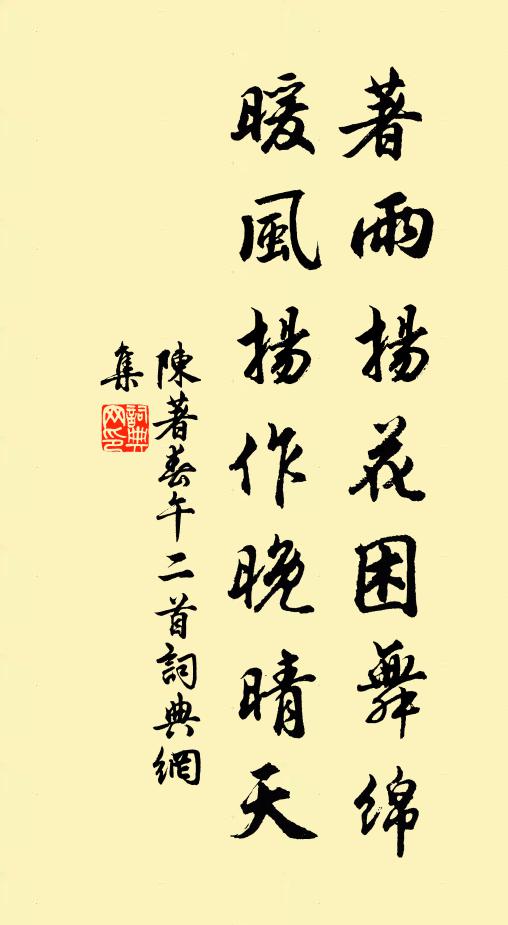 著雨揚花困舞綿
暖風揚作晚晴天
陳著春午二首詞典網
集
詞典
网印